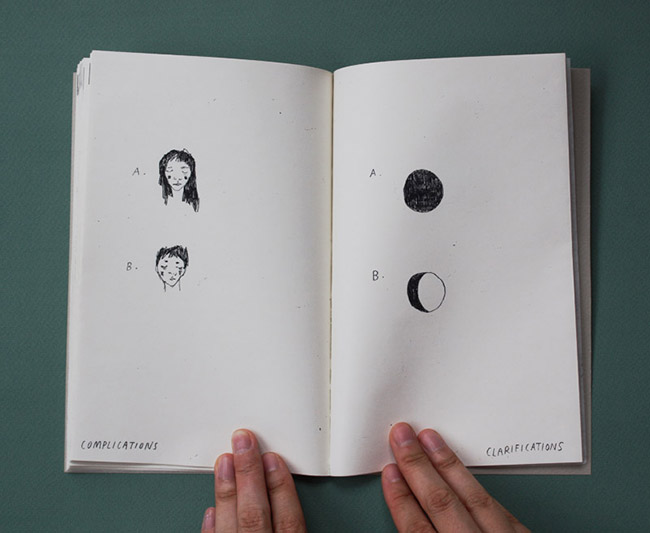 A.
B.
COMPLICATIONS
A.
B.
CLARIFICATIONS